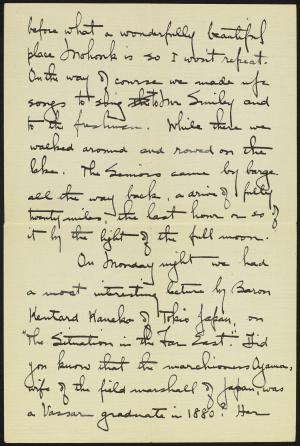 before what a wonderfully beautiful
place Mohonk is so I won't repeat.
On the way of course we made up
songs to sing to Mr Smiley and
to the freshmen. While there we
walked around and rowed on the
lake. The Seniors came by barge
all the way back, a drive of fully
twenty miles, the last hour or so of
it by the light of the full moon.
On Monday night we had
a most interesting lecture by Baron
Kentaro Kaneko of Tokio Japan, on
"The Situation in the Far East." Did
you know that the marchioness Oyama,
wife of the field marshall of Japan, was
a Vassar graduate in 1880? Her